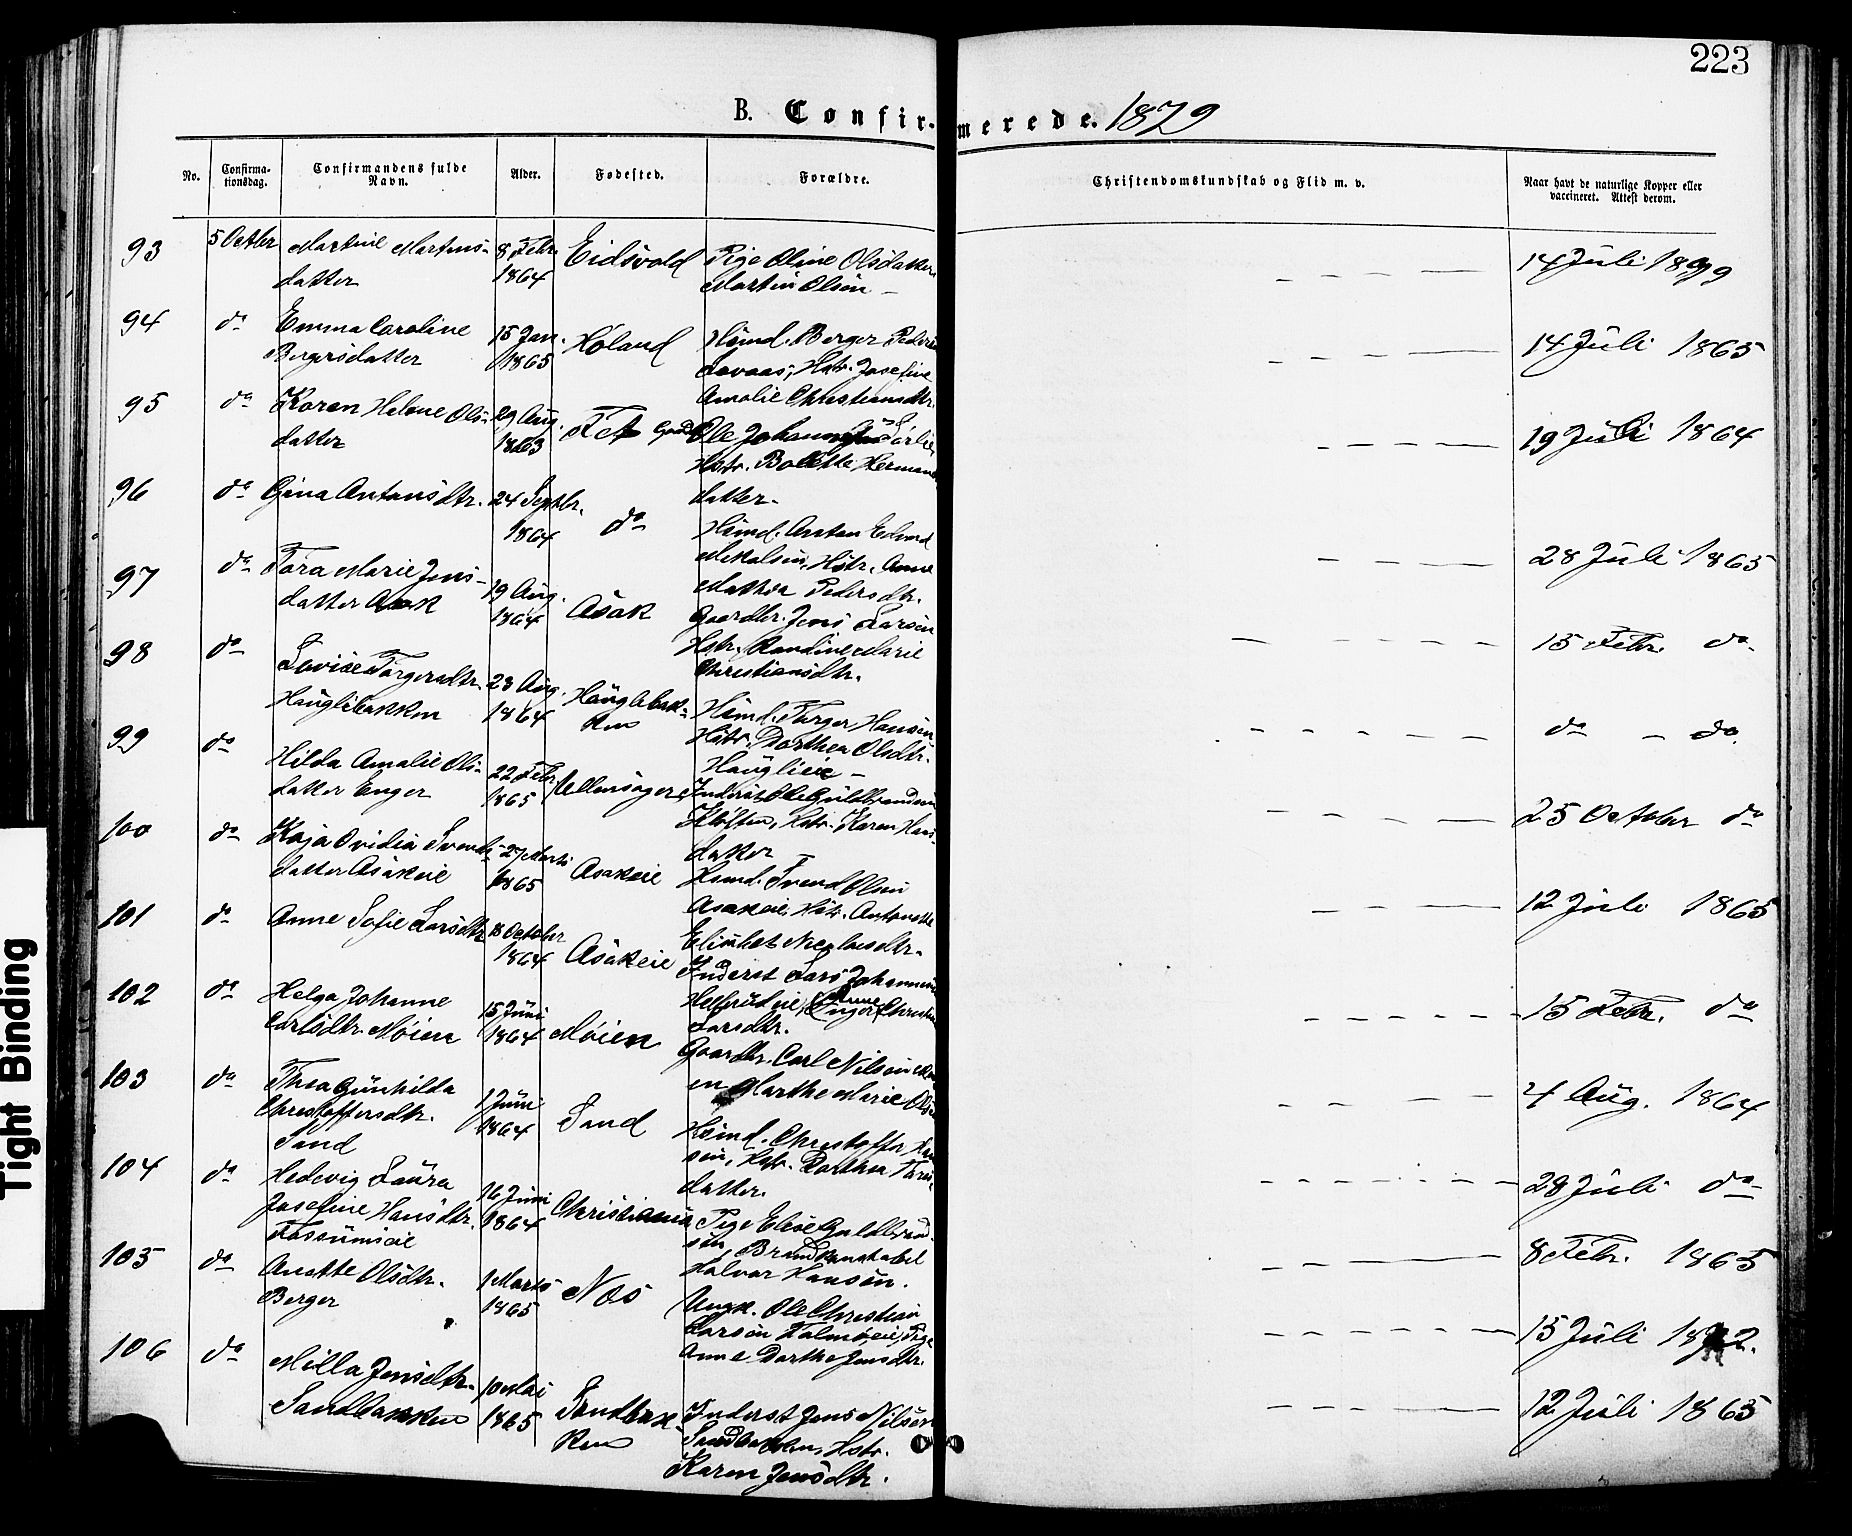 223
B. Confirmerede. 1879
No.
Confirma-
tionsdag.
Confirmandens fulde
Navn.
Alder.
Fødested.
Forældre.
Christendomskundskab og Flid m. v.
Naar havt de naturlige Kopper eller
vaccineret. Attest derom.
93 5 Octbr Martine Martins-
datter
8 Febr.
1864
Eidsvold
Pige Oline Olsdatter
Martin Olsen —
14 Juli
94 do Emma Caroline
Bergersdatter
15 Jan.
1865
Høland
Hsmd. Berger
Hstr. Josefine
Amalie Christiansdtr.
14 Juli 1865
95 do Karen Helene Ols-
datter
29 Aug.
1863
Fet
Ole
Hstr. Bolette Hermans
datter.
19 Juli 1864
96 do Gina Antonsdtr.
24 Septbr.
1864
do
Hsmd. Anton Edvard
Hstr. Anne
Mathea Pedersdtr.
28 Juli 1865
97 do Tora Marie Jens-
datter Asak
19 Aug.
1864
Asak
Gaardbr. Jens Larsen
Hstr. Randine Marie
Christiansdtr.
15 Febr. do.
98 do Lovise Torgersdtr.
Hauglibakken
23 Aug.
1864
Hauglibak-
ken
Hsmd. Torger Hansen
Hstr. Dorthea Olsdtr.
Hauglieie —
do — do.
99 do Hilda Amalie Ols-
datter Enger
22 Febr
1865
Ullensager
Inderst Ole Guldbrandsen
Kløften, Hstr. Karen Hans
datter —
25 October do
100 do Kaja Ovidia Svends-
datter Asakeie
27 Marts
1865
Asakeie
Hsmd. Svend Olsen
Asakeie, Hstr. Antonette
Elisabet Nicolaisdtr.
12 Juli 1865
101 do Anne Sofie Larsdtr
18 October
1864
Asakeie
Inderst Lars Johannesen
Anne
Larsdtr.
15 Febr. do
102 do Helga Johanne
Carlsdtr. Møien
15 Juni
1864
Møien
Gaardbr. Carl Nilsen Møi
en Marthe Marie Ols
4 Aug. 1864
103 do Thea Gunhilda
Christoffersdtr.
Sand
1 Juni
1864
Sand
Hsmd. Christoffer Han
sen, Hstr. Dorthea
datter.
28 Juli do
104 do Hedevig Laura
Josefine Hansdtr.
Fossumseie
16 Juni
1864
Christiania
Pige Elise Guldbrand
sen, Brandkonstabel
Halvor Hansen.
8 Febr. 1865
105 do Anette Olsdtr.
Berger
1 Marts
1865
Nes
Ungk. Ole Christian
Larsen Pige
Anne Dorthe Jensdtr.
15 Juli
106 do Milla Jensdtr.
Sandbakken
10 Mai
1865
Sandbak-
ken
Inderst Jens Nilsen
Sandbakken, Hstr.
Karen Jensdtr.
12 Juli 1865
Tight Binding